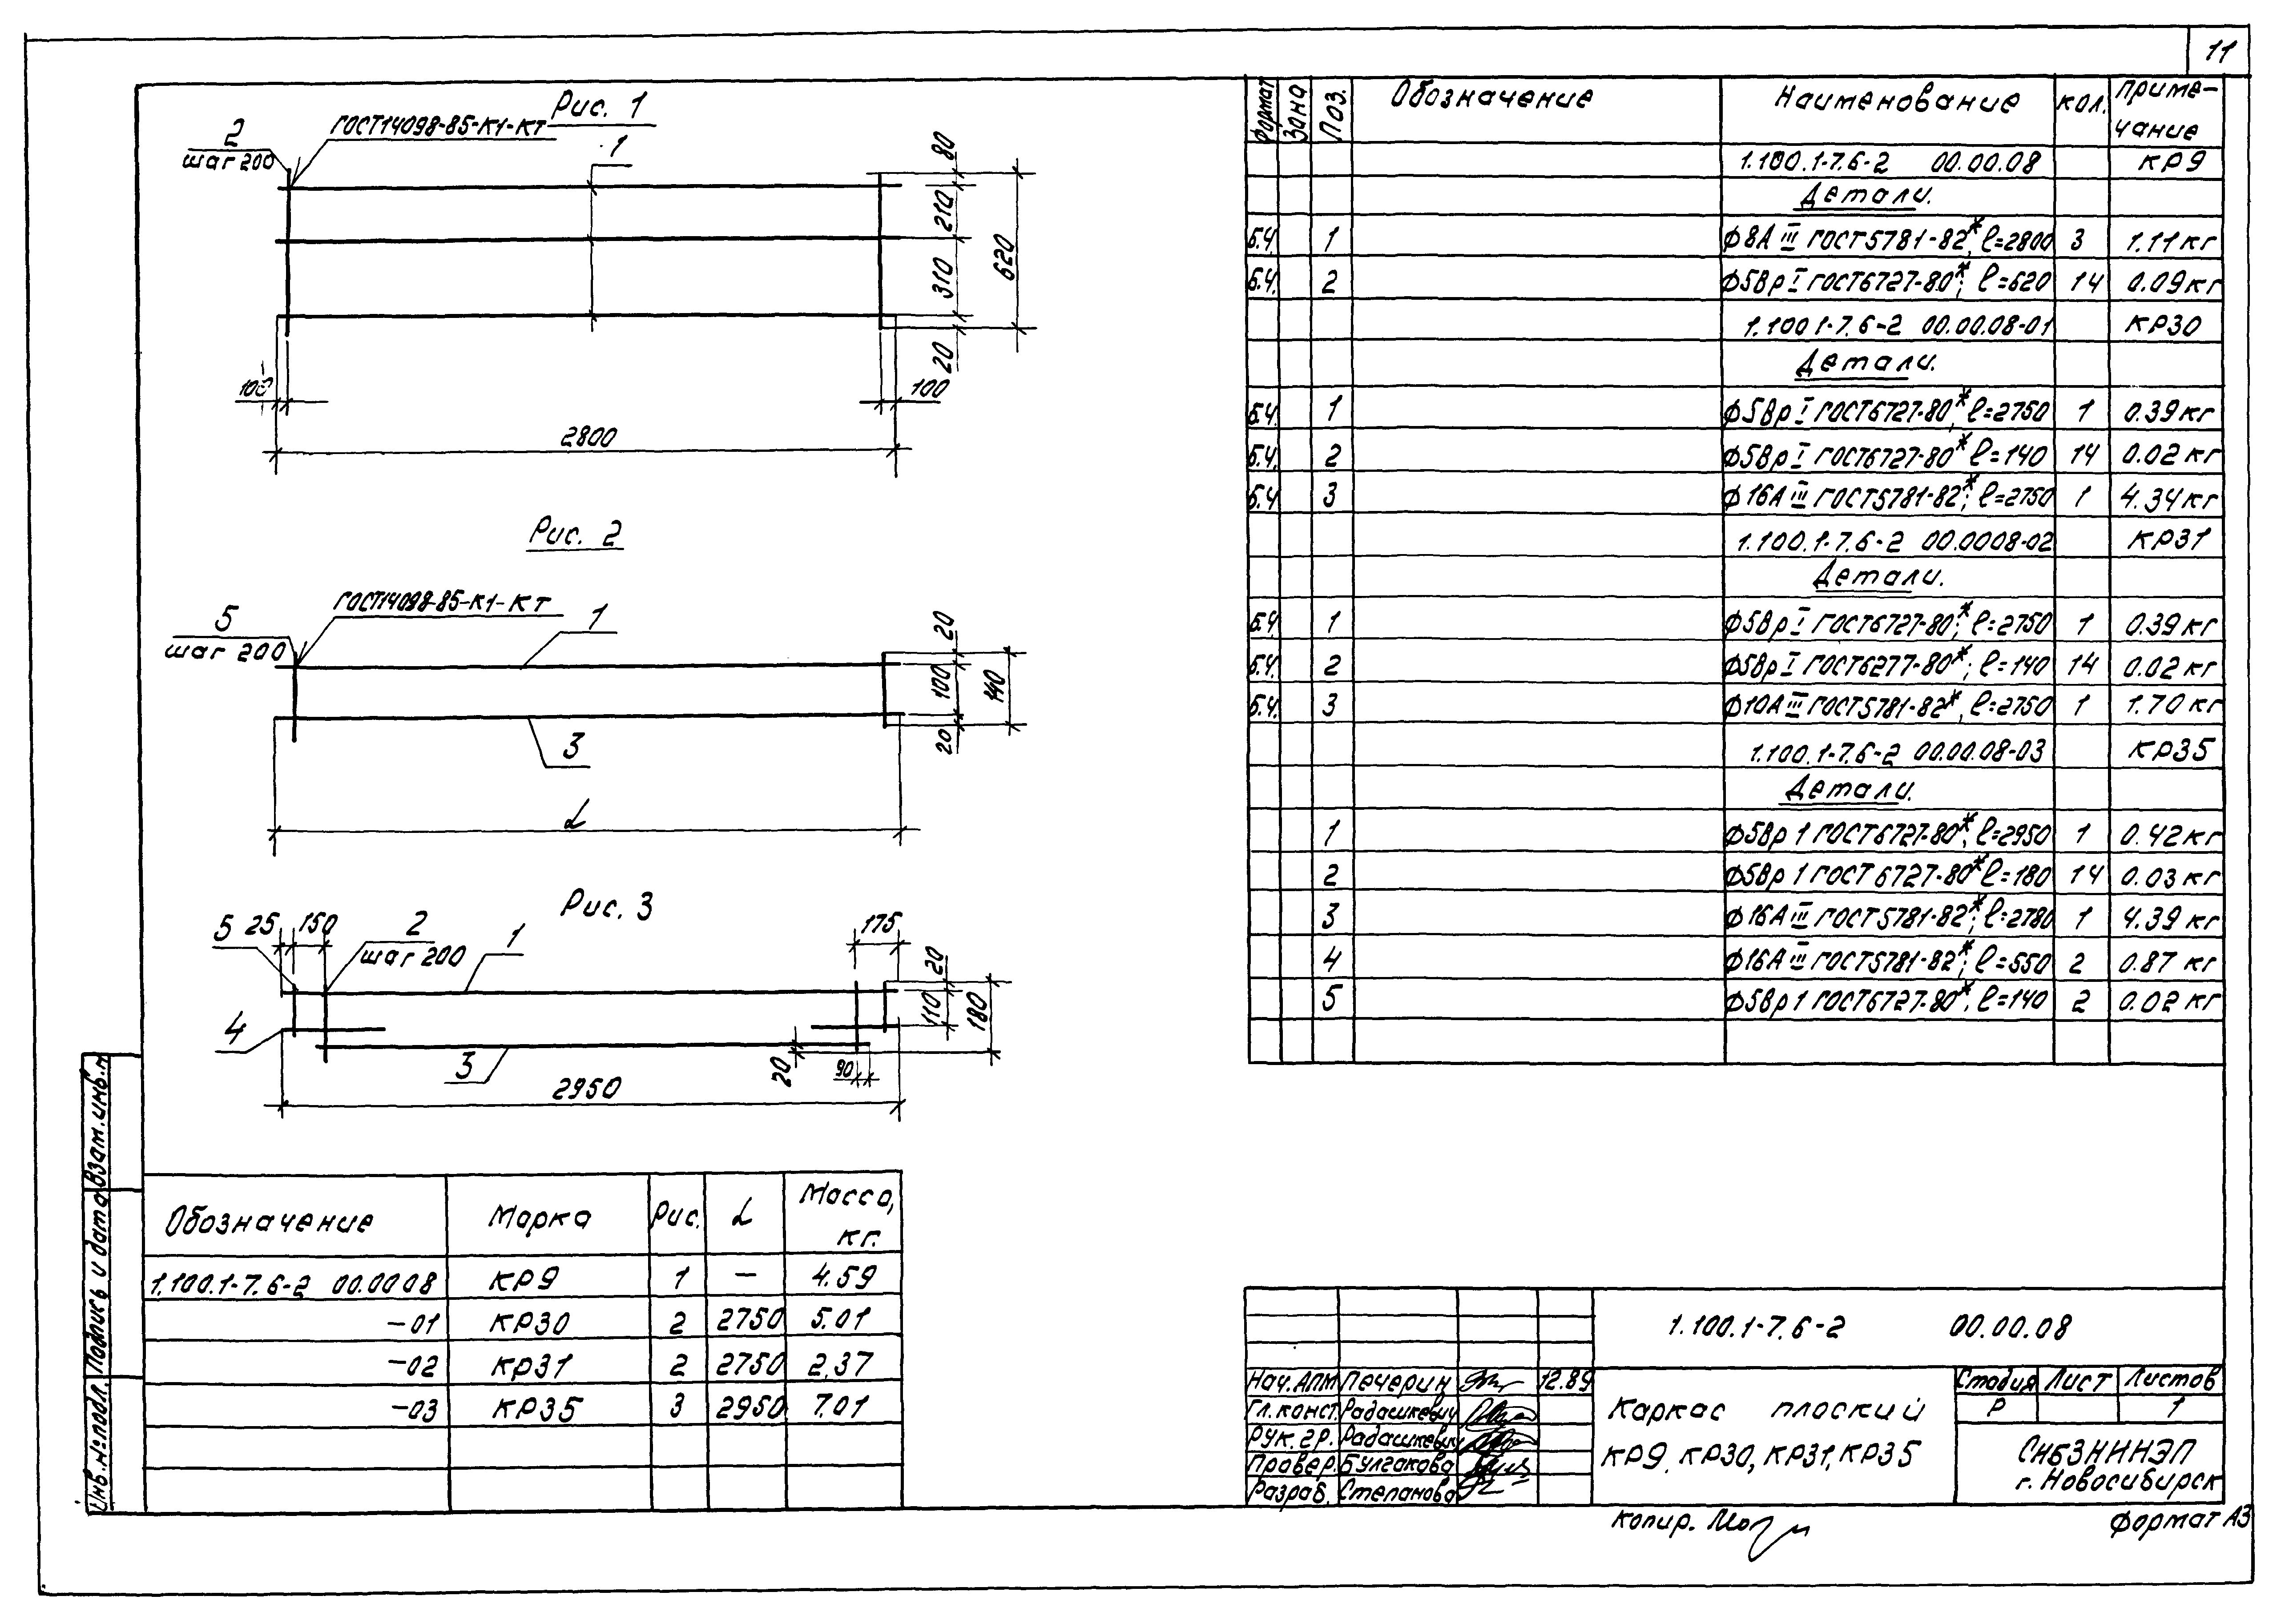 11
Рис. 1
2
шаг 200
ГОСТ14098-85-К1-Кт
1
80
210
310
20
620
100
100
2800
Рис. 2
5
шаг 200
ГОСТ14098-85-К1-Кт
1
3
20
100
20
140
L
Рис. 3
5 25 150
2
шаг 200
1
175
20
110
180
4
3
20
90
2950
Обозначение Марка Рис. L Масса, кг.
1.100.1-7.6-2 00.0008 КР9 1 — 4.59
-01 КР30 2 2750 5.01
-02 КР31 2 2750 2,37
-03 КР35 3 2950 7.01
Формат Зона Поз. Обозначение Наименование Кол. Приме-
чание
1.100.1-7.6-2 00.00.08 КР9
Детали.
Б.Ч. 1 Ф8А III ГОСТ5781-82*, ℓ=2800 3 1.11кг
Б.Ч. 2 Ф5Вр I ГОСТ6727-80*; ℓ=620 14 0.09кг
1.100.1-7.6-2 00.00.08-01 КР30
Детали.
Б.Ч. 1 Ф5Вр I ГОСТ6727-80*, ℓ=2750 1 0.39кг
Б.Ч. 2 Ф5Вр I ГОСТ6727-80* ℓ=140 14 0.02кг
Б.Ч 3 Ф16А III ГОСТ5781-82*; ℓ=2750 1 4.34кг
1.100.1-7.6-2 00.0008-02 КР31
Детали.
Б.Ч. 1 Ф5Вр I ГОСТ6727-80*; ℓ=2750 1 0.39кг
Б.Ч. 2 Ф5Вр I ГОСТ6277-80*; ℓ=140 14 0.02кг
Б.Ч. 3 Ф10А III ГОСТ5781-82*, ℓ=2750 1 1.70кг
1.100.1-7.6-2 00.00.08-03 КР35
Детали.
1 Ф5Вр 1 ГОСТ6727-80*, ℓ=2950 1 0.42кг
2 Ф5Вр 1 ГОСТ6727-80* ℓ=180 14 0.03кг
3 Ф16А III ГОСТ5781-82*; ℓ=2780 1 4.39кг
4 Ф16А III ГОСТ5781-82*; ℓ=550 2 0.87 кг
5 Ф5Вр 1 ГОСТ6727-80*; ℓ=140 2 0.02 кг
Взам.инв.н
Подпись и дата
Инв.№подл.
1.100.1-7.6-2 00.00.08
Нач.АПМ Печерин 12.89
Гл.конст. Радашкевич
Рук.гр. Радашкевич
Провер. Булгакова
Разраб. Степанова
Каркас плоский
КР9, КР30, КР31, КР35
Стадия Лист Листов
Р 1
СибЗНИИЭП
г. Новосибирск
Копир.
Формат А3